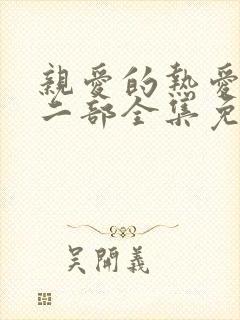 親愛的熱愛
二部全集免
吴開義